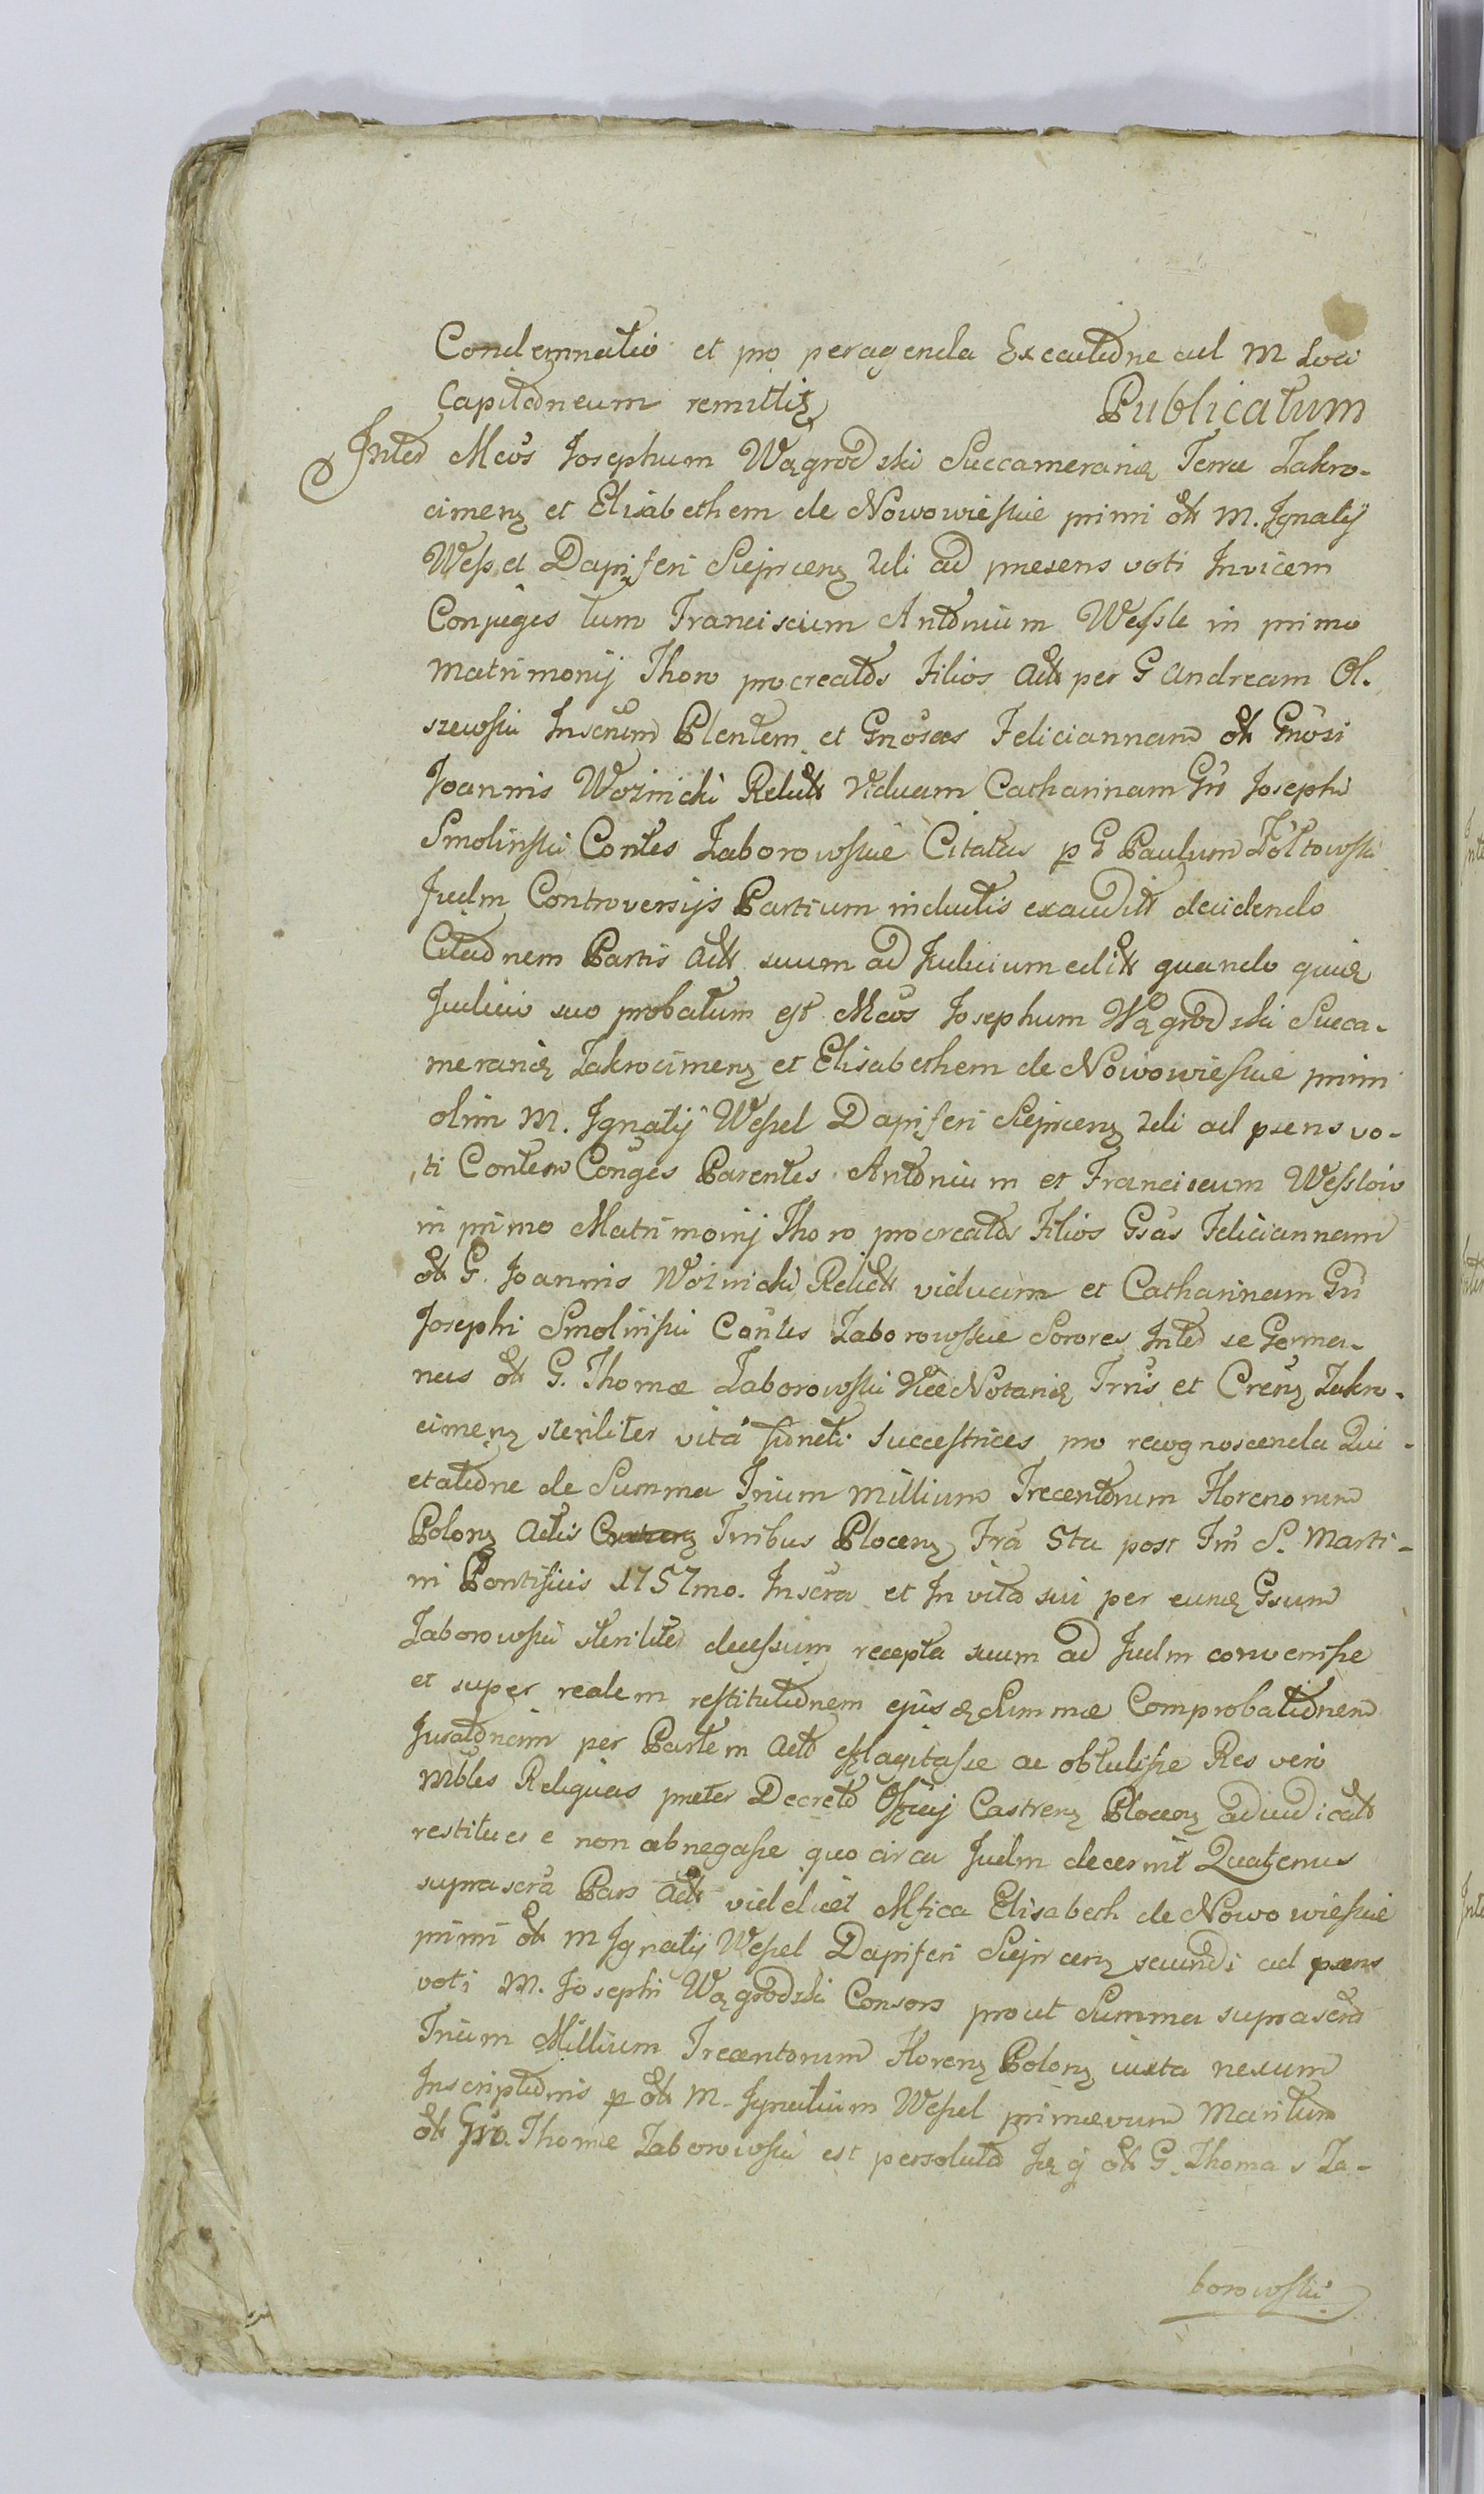 Condemnatio et pro peragenda Executõne ad M Loci
Capitõneum remittitꝫ Publicatum
Inter Mcos Josephum Wągrodzki Succamerariũ Terrae Zakro-
cimenꝫ et Elisabethem de Nowowieskie primi olt M. Ignatij
Wessel Dapiferi Sieprcenꝫ 2di ad presens voti Invicem
Conjuges tum Franciscum Antonium Wessle in primo
Matrimonij Thoro procreatos Filios Act per G Andream Ol-
szewski Inscrum Plentem et Gnosas Feliciannam olt Gnosi
Joannis Woźnicki Relict Viduam Catharinam Gñ Josephi
Smolinski Contes Zaborowskie Citatas p G Paulum Żółtowski
Judm Controversijs Partium inductis exaudit decidendo
Citaõnem Partis Act suum ad Judicium edit quando quidẽ
Judicio suo probatum est Mcos Josephum Wągrodzki Succa-
merariũ Zakrocimenꝫ et Elisabethem de Nowowieskie primi
olim M. Ignatij Wessel Dapiferi Sieprcenꝫ 2di ad psens vo-
ti Contem Conges Parentes Antonium et Franciscum Wesslow
in primo Matrimonij Thoro procreatos Filios Gsas Feliciannam
olt G. Joannis Woźnicki Relict viduam et Catharinam Gñ
Josephi Smolinski Contes Zaborowskie Sorores Inter se Germa-
nas olt G. Thomae Zaborowski Vice Notarij Trris et Crenꝫ Zakro-
cimenꝫ steriliter vitâ functi Successtrices pro recognoscenda Qui-
etatione de Summa Trium Millium Trecentorum Florenorum
Polonꝫ Actis Tribus Plocenꝫ Fra 5ta post Fm S. Marti-
ni Pontificis 1757mo. Inscra et In vita sui per eundẽ Gsum
Zaborowski steriliter decessum recepta suum ad Judm convenisse
et super realem restitutionem ejusdẽ Summae Comprobationem
Juratoriam per Partem Act efflagitasse ac obtulisse Res vero
Mbles Reliquas preter Decreto Officij Castrenꝫ Plocenꝫ adiudicat
restituere non abnegasse quo circa Judm decernit Quatenus
suprascra Pars Act videlicet Mfica Elisabeth de Nowowieskie
primi olt M Ignatij Wessel Dapiferi Sieprcenꝫ secundi ad psens
voti M. Josephi Wągrodzki Consors prout Summa suprascra
Trium Millium Trecentorum Florenꝫ Polonꝫ iuxta nexum
Inscriptionis p olt M. Ignatium Wessel primaevum Maritum
olt Gso. Thomae Zaborowski est persoluta olt G. Thomas Za-
borowski